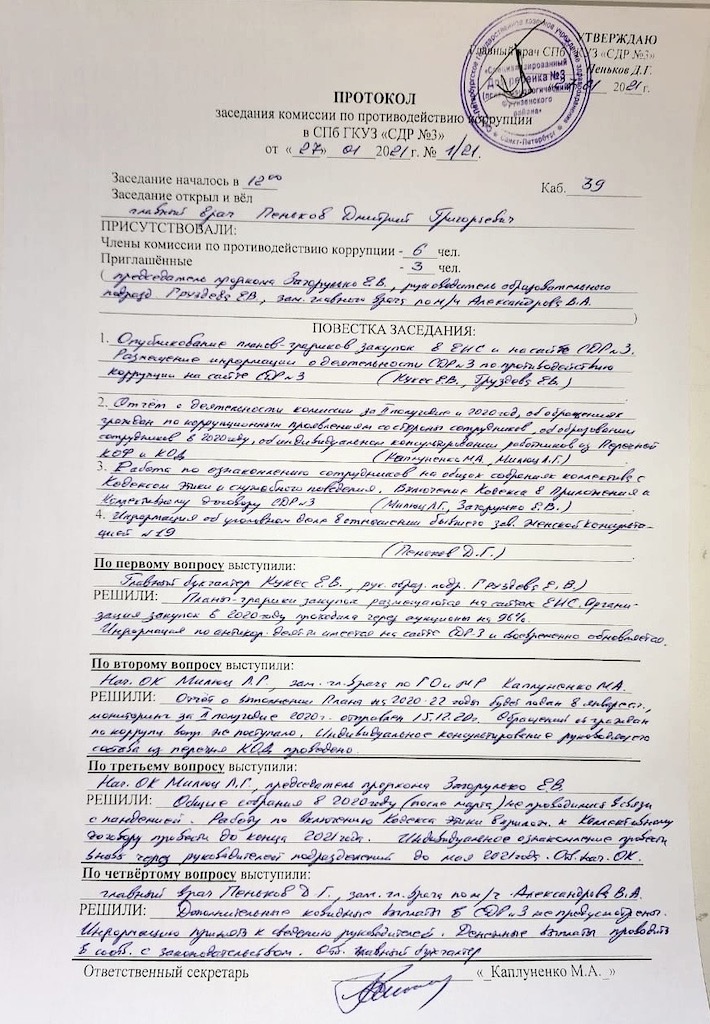 УТВЕРЖДАЮ
Главный врач СПб ГКУЗ «СДР №3»
Пеньков Д.Г.
01 2021 г.
ПРОТОКОЛ
заседания комиссии по противодействию коррупции
в СПб ГКУЗ «СДР №3»
от «27» 01 2021 г. № 1/21.
Заседание началось в 12 00
Каб. 39
Заседание открыл и вёл
главный врач Пеньков Дмитрий Григорьевич
ПРИСУТСТВОВАЛИ:
Члены комиссии по противодействию коррупции - 6 чел.
Приглашённые - 3 чел.
( председатель профкома Загорулько Е.В., руководитель образовательного
подразд Груздева Е.В., зам. главного врача по м/ч Александрова В.А.
)
ПОВЕСТКА ЗАСЕДАНИЯ:
1. Опубликование планов-графиков закупок в ЕИС и на сайте СДР №3.
Размещение информации о деятельности СДР №3 по противодействию
коррупции на сайте СДР №3 (Кукес Е.В., Груздева Е.В.)
2. Отчёт о деятельности комиссии за II полугодие и 2020 год, об обращениях
граждан по коррупционным проявлениям со стороны сотрудников, об образовании
сотрудников в 2020 году, об индивидуальном консультировании работников из Перечней
КОФ и КОД (Каплуненко М.А., Милюц Л.Г.)
3. Работа по ознакомлению сотрудников на общих собраниях коллектива с
Кодексом этики и служебного поведения. Включение Кодекса в Приложения к
Коллективному договору СДР №3 (Милюц Л.Г., Загорулько Е.В.)
4. Информация об уголовном деле в отношении бывшего зав. женской консульта-
цией №19
(Пеньков Д.Г.)
По первому вопросу выступили:
Главный бухгалтер Кукес Е.В., рук. образ. подр. Груздева Е.В)
РЕШИЛИ: Планы-графики закупок размещаются на сайтах ЕИС. Органи-
зация закупок в 2020 году проходила через аукционы на 96%.
Информация по антикор. деят-ти имеется на сайте СДР-3 и своевременно обновляется.
По второму вопросу выступили:
Нач. ОК Милюц Л.Г., зам. гл. врача по ГО и МР Каплуненко М.А.
РЕШИЛИ: Отчёт о выполнении Плана на 2020-22 годы будет подан в январе с.г.,
мониторинг за II полугодие 2020г. отправлен 15.12.20г. Обращений от граждан
по коррупц. вопр. не поступало. Индивидуальное консультирование руководящего
состава из перечня КОД проведено.
По третьему вопросу выступили:
Нач. ОК Милюц Л.Г., председатель профкома Загорулько Е.В.
РЕШИЛИ: Общие собрания в 2020 году (после марта) не проводились в связи
с пандемией. Работу по включению Кодекса этики в прилож. к Коллективному
договору провести до конца 2021 года. Индивидуальное ознакомление провести
вновь через руководителей подразделений до мая 2021 года. Отв. нач. ОК.
По четвёртому вопросу выступили:
главный врач Пеньков Д.Г., зам. гл. врача по м/ч Александрова В.А.
РЕШИЛИ: Дополнительные ковидные выплаты в СДР №3 не предусмотрены.
Информацию принять к сведению руководителей. Денежные выплаты проводить
в соотв. с законодательством. Отв. главный бухгалтер
Ответственный секретарь «_Каплуненко М.А._»